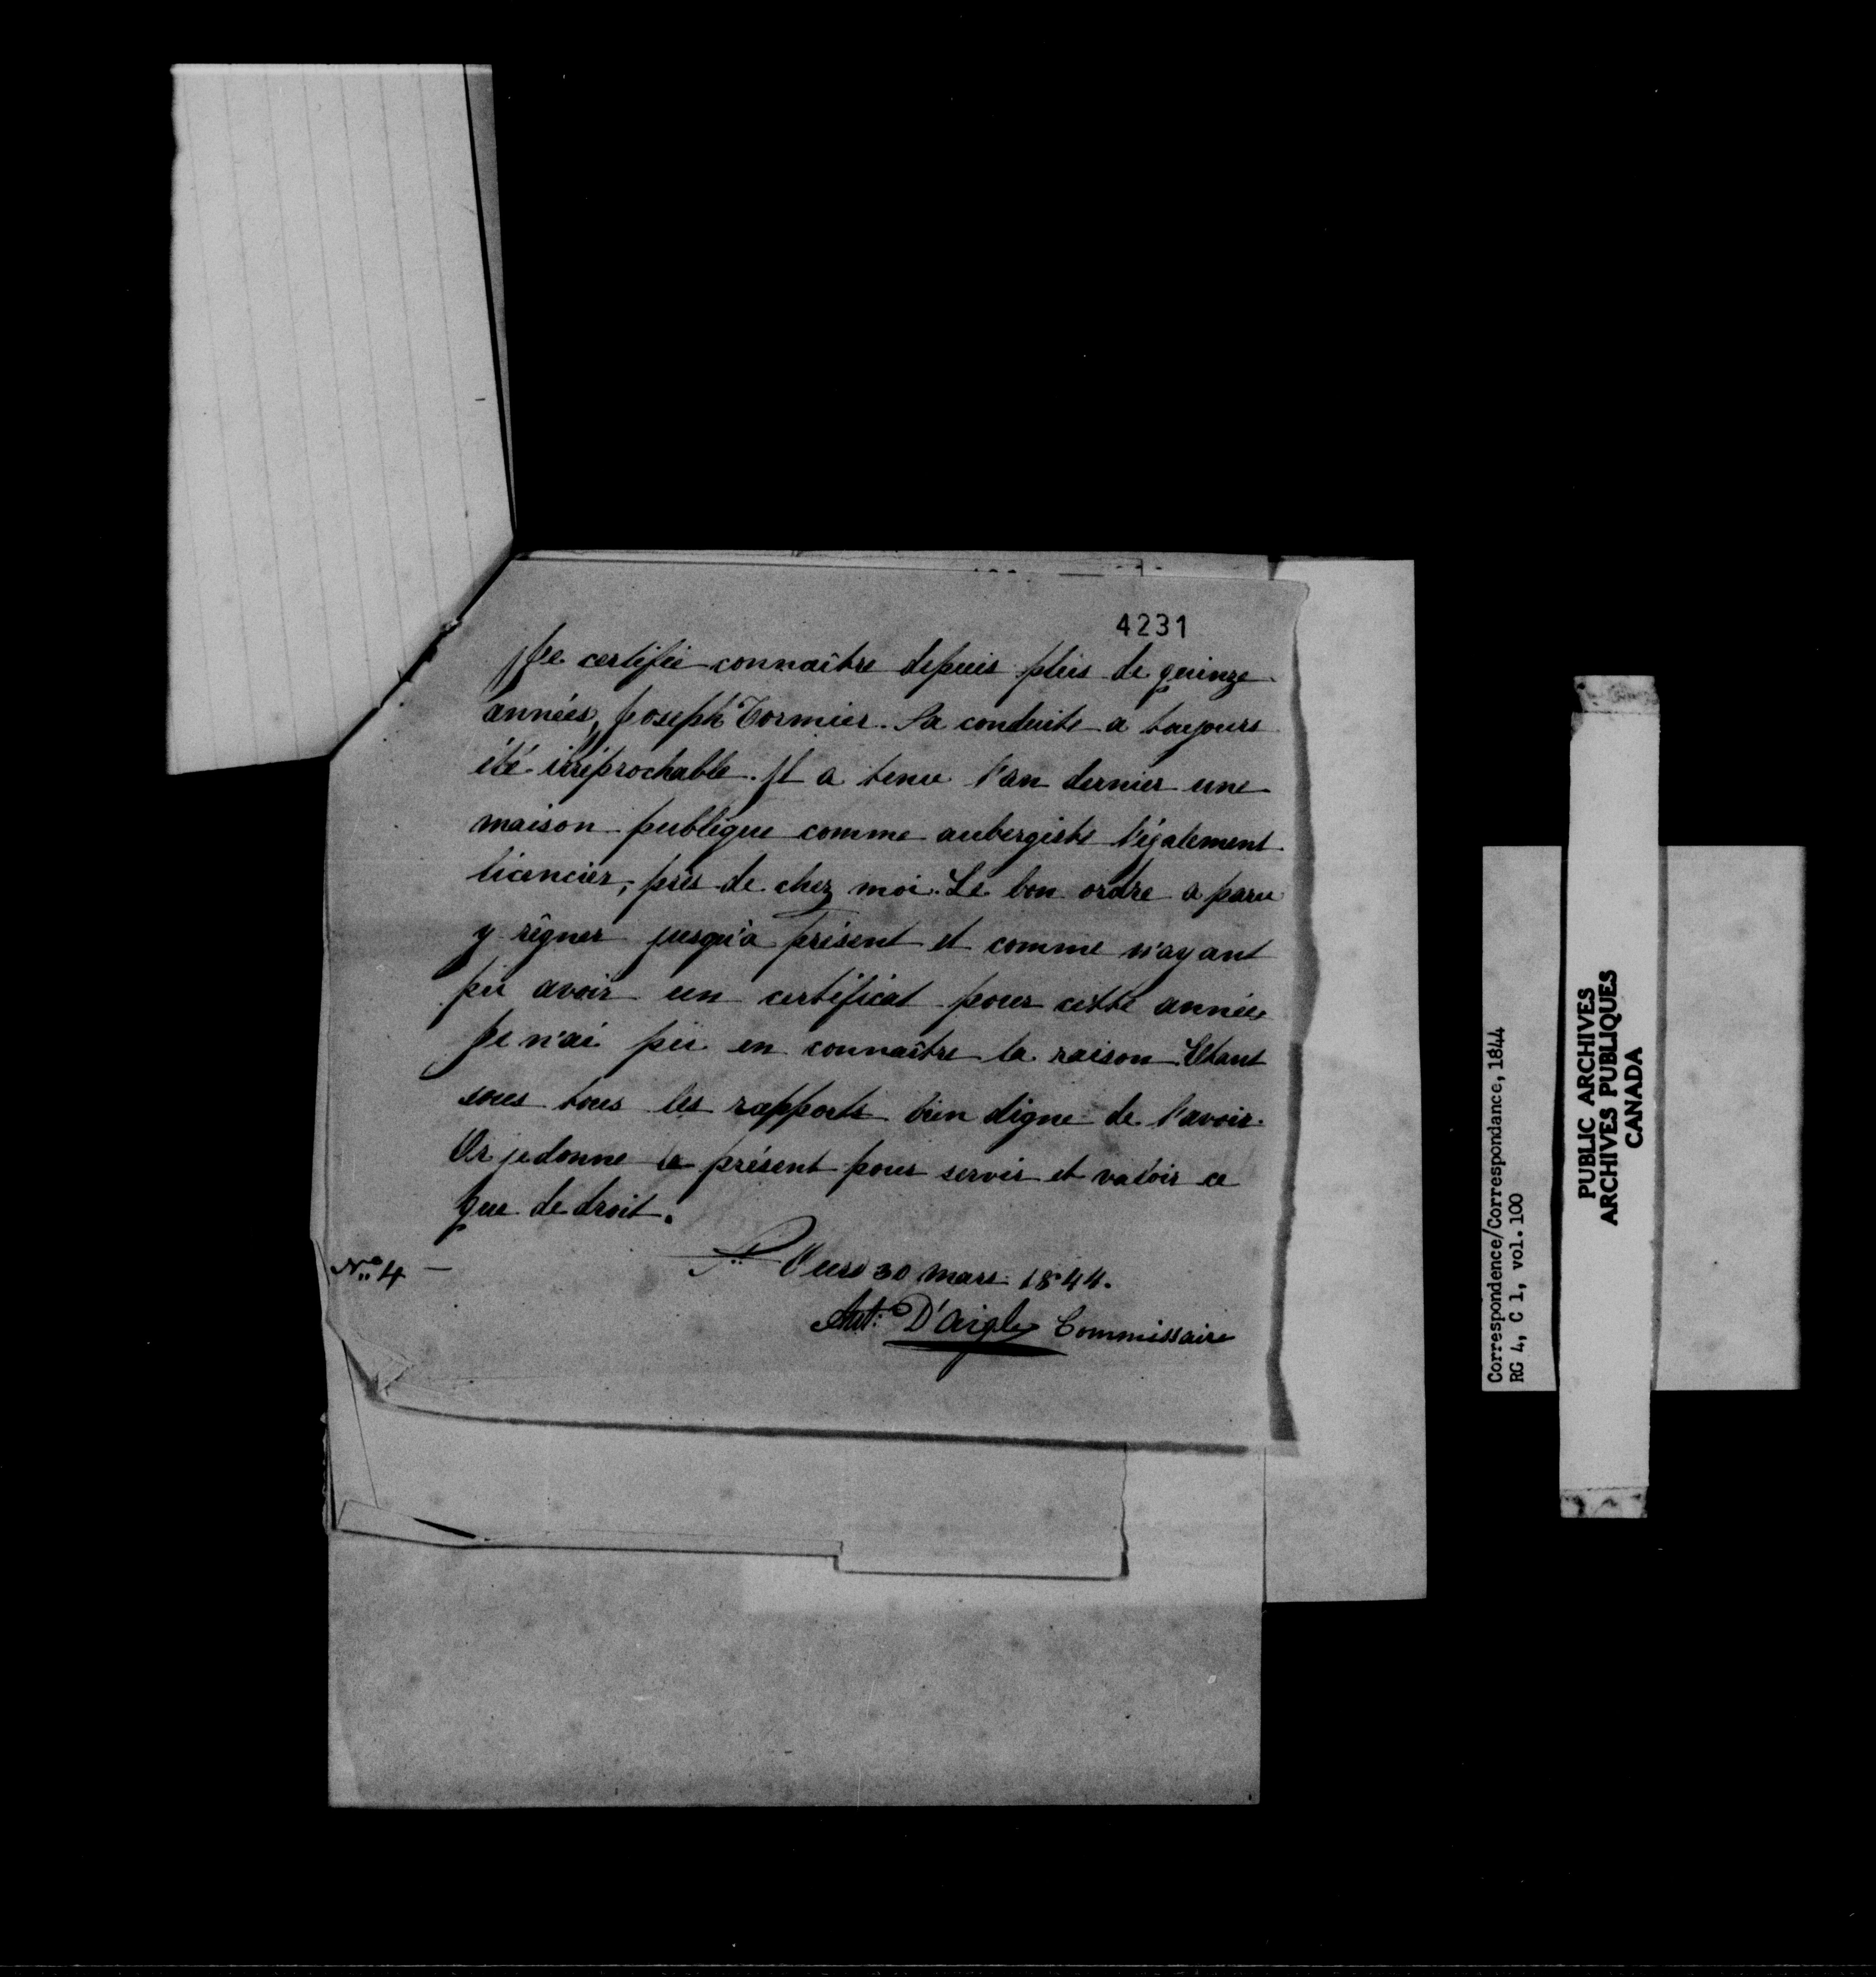 4231
Je certifie connaître depuis plus de quinze
années, Joseph Cormier. Sa conduite a toujours
été irréprochable. Il a tenu l'an dernier une
maison publique comme aubergiste légalement
licencier, près de chez moi. Le bon ordre a paru
y règner jusqu'à présent et comme n'ayant
pu avoir un certificat pour cette année
Je n'ai pu en connaître la raison Etant
sous tous les rapports bien digne de l'avoir.
Or je donne le présent pour servir et valoir ce
que de droit.
Nº 4 —
Ours 30 mars 1844.
Ant: D'Aigle Commissaire
Correspondence/Correspondance, 1844
RG 4, C 1, vol. 100
PUBLIC ARCHIVES
ARCHIVES PUBLIQUES
CANADA